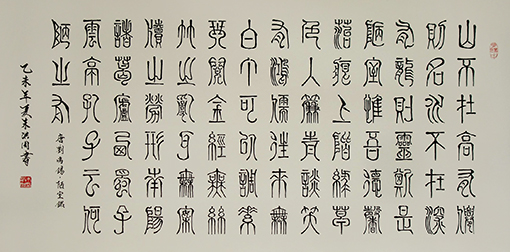 山不在高有僊
則名水不在深
有龍則靈斯是
陋室惟吾德馨
苔痕上階綠草
色入簾青談笑
有鴻儒往來無
白丁可以調素
琴閱金經無絲
竹之亂耳無案
牘之勞形南陽
諸葛廬西蜀子
雲亭孔子云何
陋之有
唐劉禹錫·陋室銘
乙未年夏朱洪書